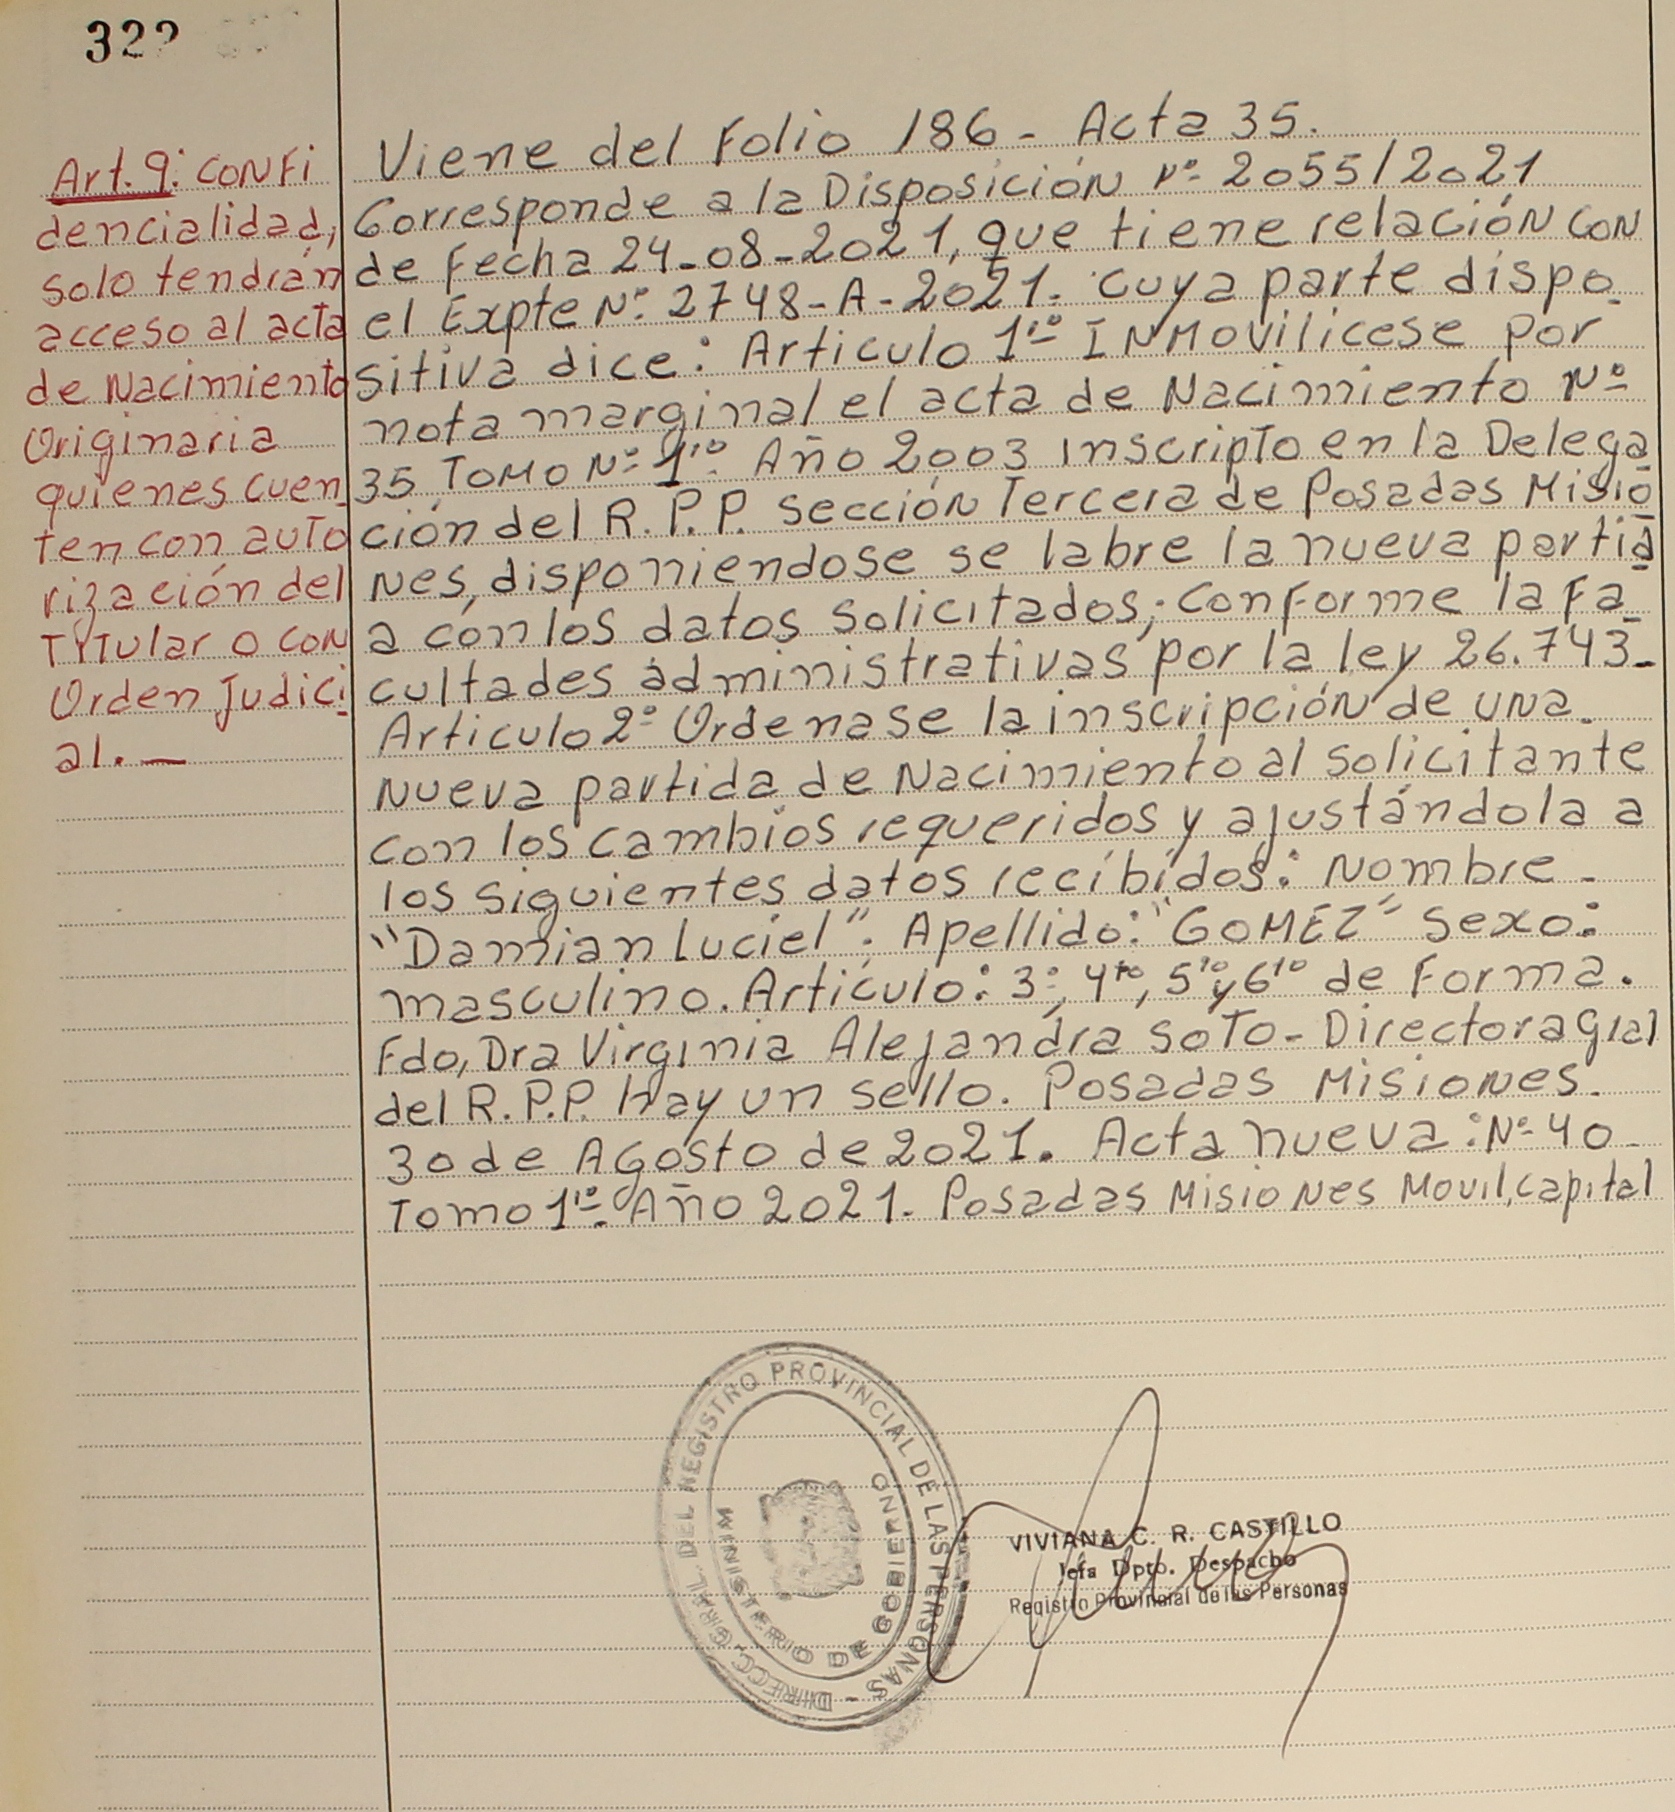 322
Art. 9: CONFI
dencialidad,
solo tendrán
acceso al acta
de Nacimiento
Originaria
quienes cuen
ten con auto
rización del
TITular o con
Orden Judici
al. —
Viene del Folio 186 - Acta 35.
Corresponde a la Disposición Nº 2055/2021
de Fecha 24-08-2021, que tiene relación con
el Expte Nº 2748-A-2021. cuya parte dispo-
sitiva dice: Articulo 1ro INMOvilicese por
nota marginal el acta de Nacimiento Nº
35 TOMO Nº 1ro Año 2003 inscripto en la Delega
ción del R.P.P. sección Tercera de Posadas Misio
nes, disponiendose se labre la nueva partid
a con los datos solicitados; conforme la Fa
cultades administrativas por la ley 26.743-
Articulo 2º Ordenase la inscripción de una.
Nueva partida de Nacimiento al solicitante
con los cambios requeridos y ajustándola a
los siguientes datos recibidos: Nombre -
"Damian Luciel". Apellido: "GOMEZ" Sexo:
masculino. Articulo: 3º, 4to, 5to y 6to de Forma.
Fdo, Dra Virginia Alejandra Soto - Directora Gral
del R.P.P. Hay un sello. Posadas Misiones.
30 de Agosto de 2021. Acta nueva: Nº 40 -
Tomo 1ro. Año 2021. Posadas Misiones Movil, capital
DIRECC. GRAL. DEL REGISTRO PROVINCIAL DE LAS PERSONAS -
MINISTERIO DE GOBIERNO
VIVIANA C. R. CASTILLO
Jefa Dpto. Despacho
Registro Provincial de las Personas